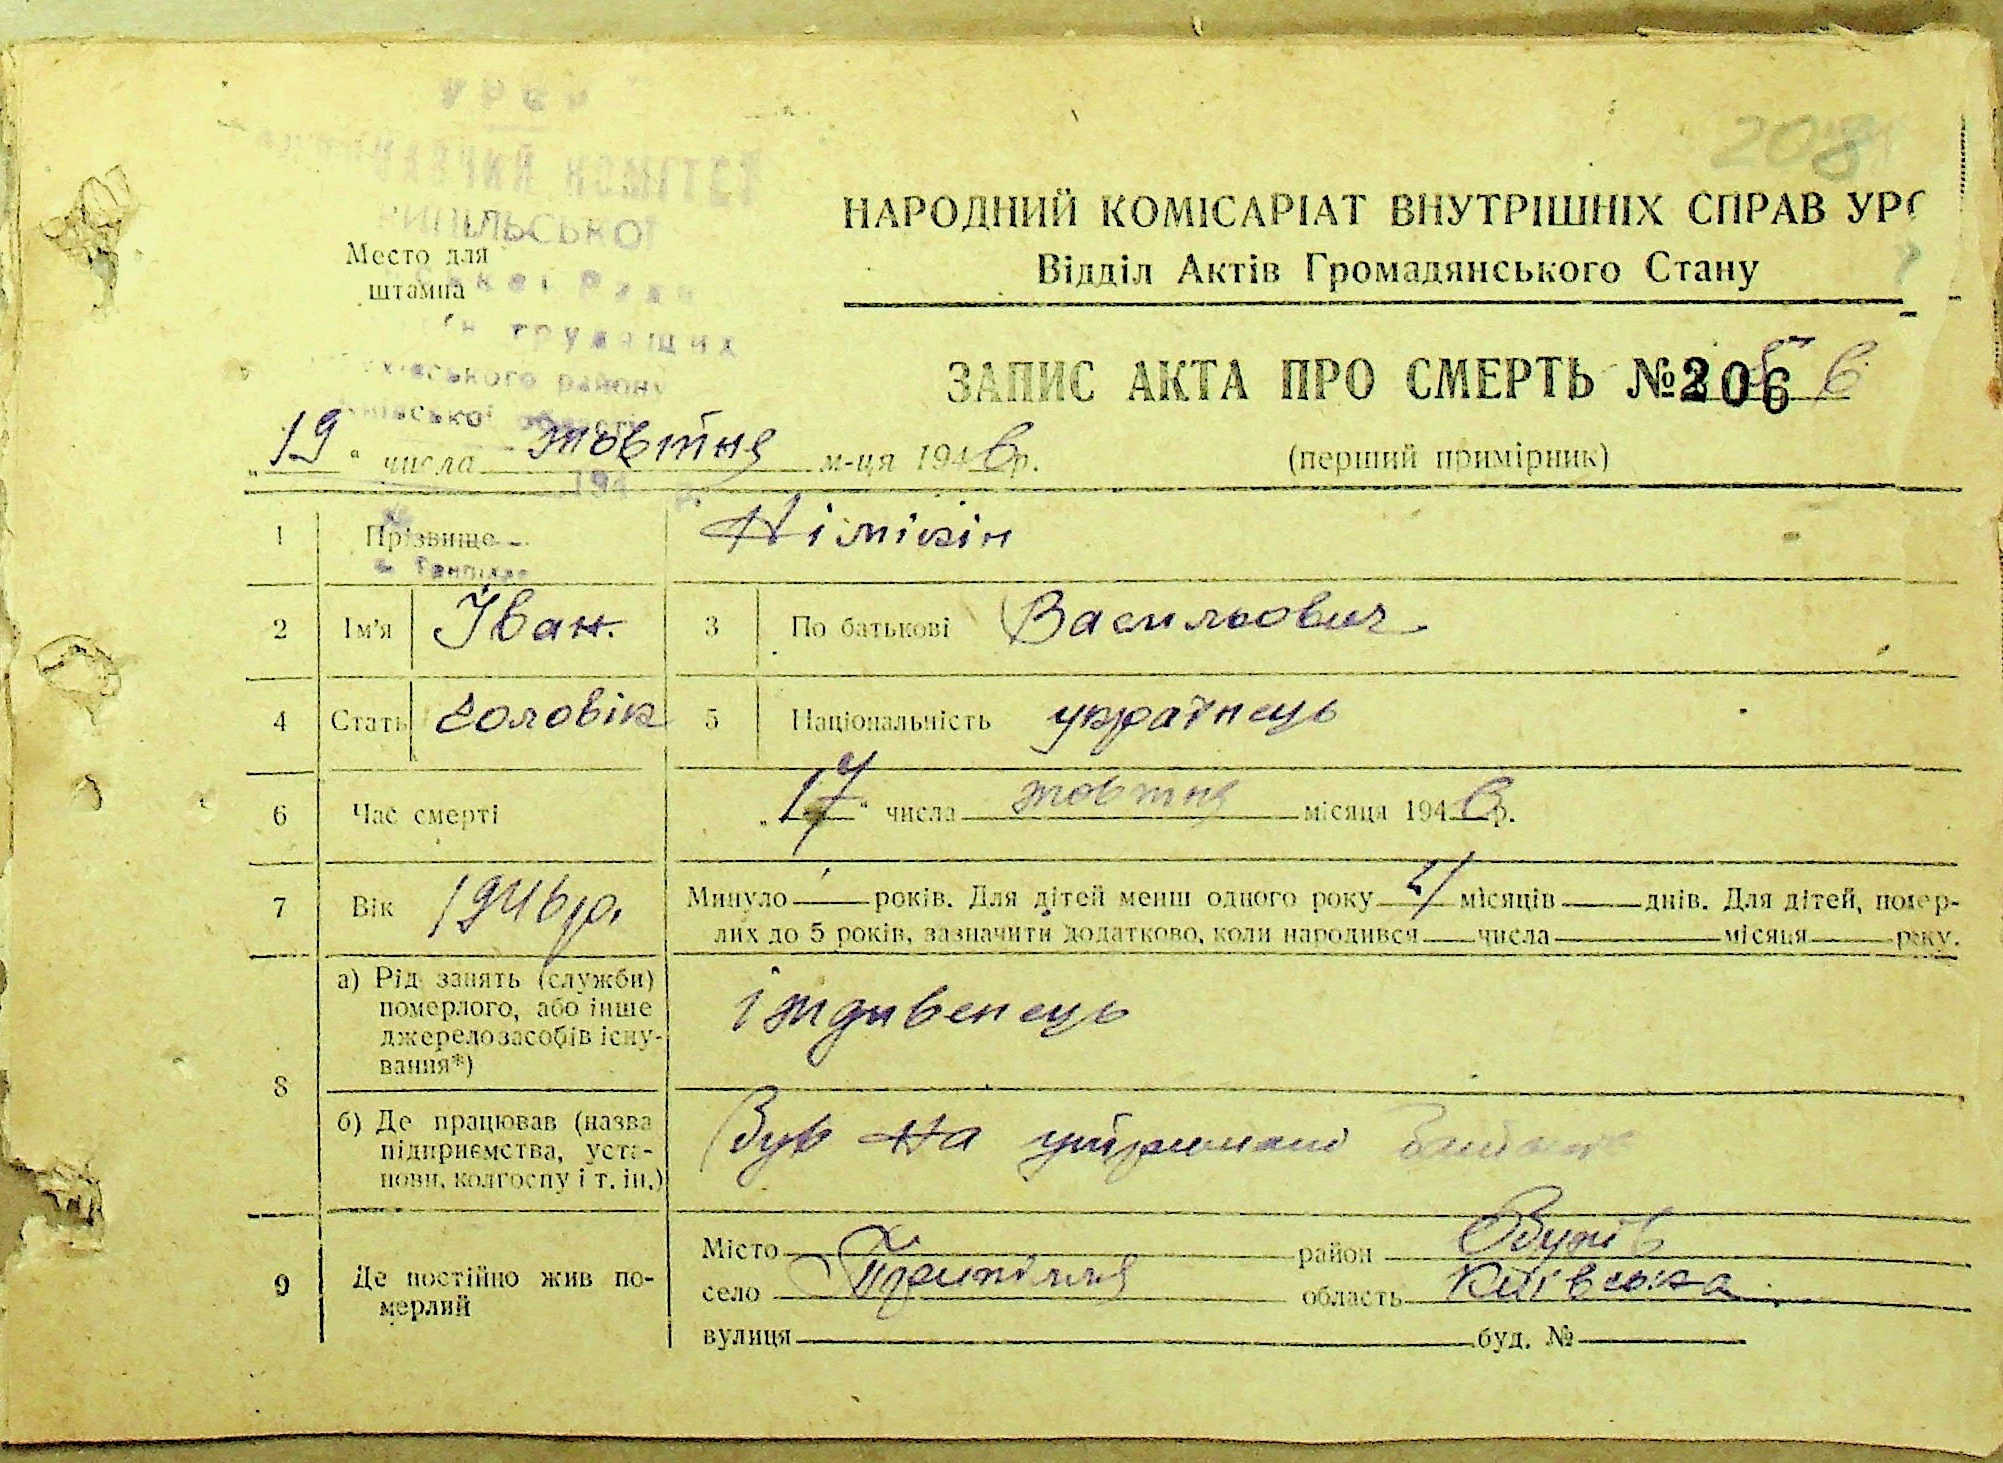 208
КОМІТЕТ
Место для
штампа
трудящих
району
194
НАРОДНИЙ КОМІСАРІАТ ВНУТРІШНІХ СПРАВ УРС
Відділ Актів Громадянського Стану
ЗАПИС АКТА ПРО СМЕРТЬ № 206
„19“ числа жовтня м-ця 1946р.
(перший примірник)
1 Прізвище
2 Ім'я Іван. 3 По батькові Васильович
4 Стать чоловік 5 Національність українець
6 Час смерті „17“ числа жовтня місяця 1946р.
7 Вік 1946р. Минуло років. Для дітей менш одного року місяців днів. Для дітей, помер-
лих до 5 років, зазначити додатково, коли народився числа місяця року.
8 а) Рід занять (служби)
померлого, або інше
джерело засобів існу-
вання*)
іждивенець
б) Де працював (назва
підприємства, уста-
нови, колгоспу і т. ін.)
Був на
9 Де постійно жив по-
мерлий
Місто район Обухів
село область Київська
вулиця буд. №